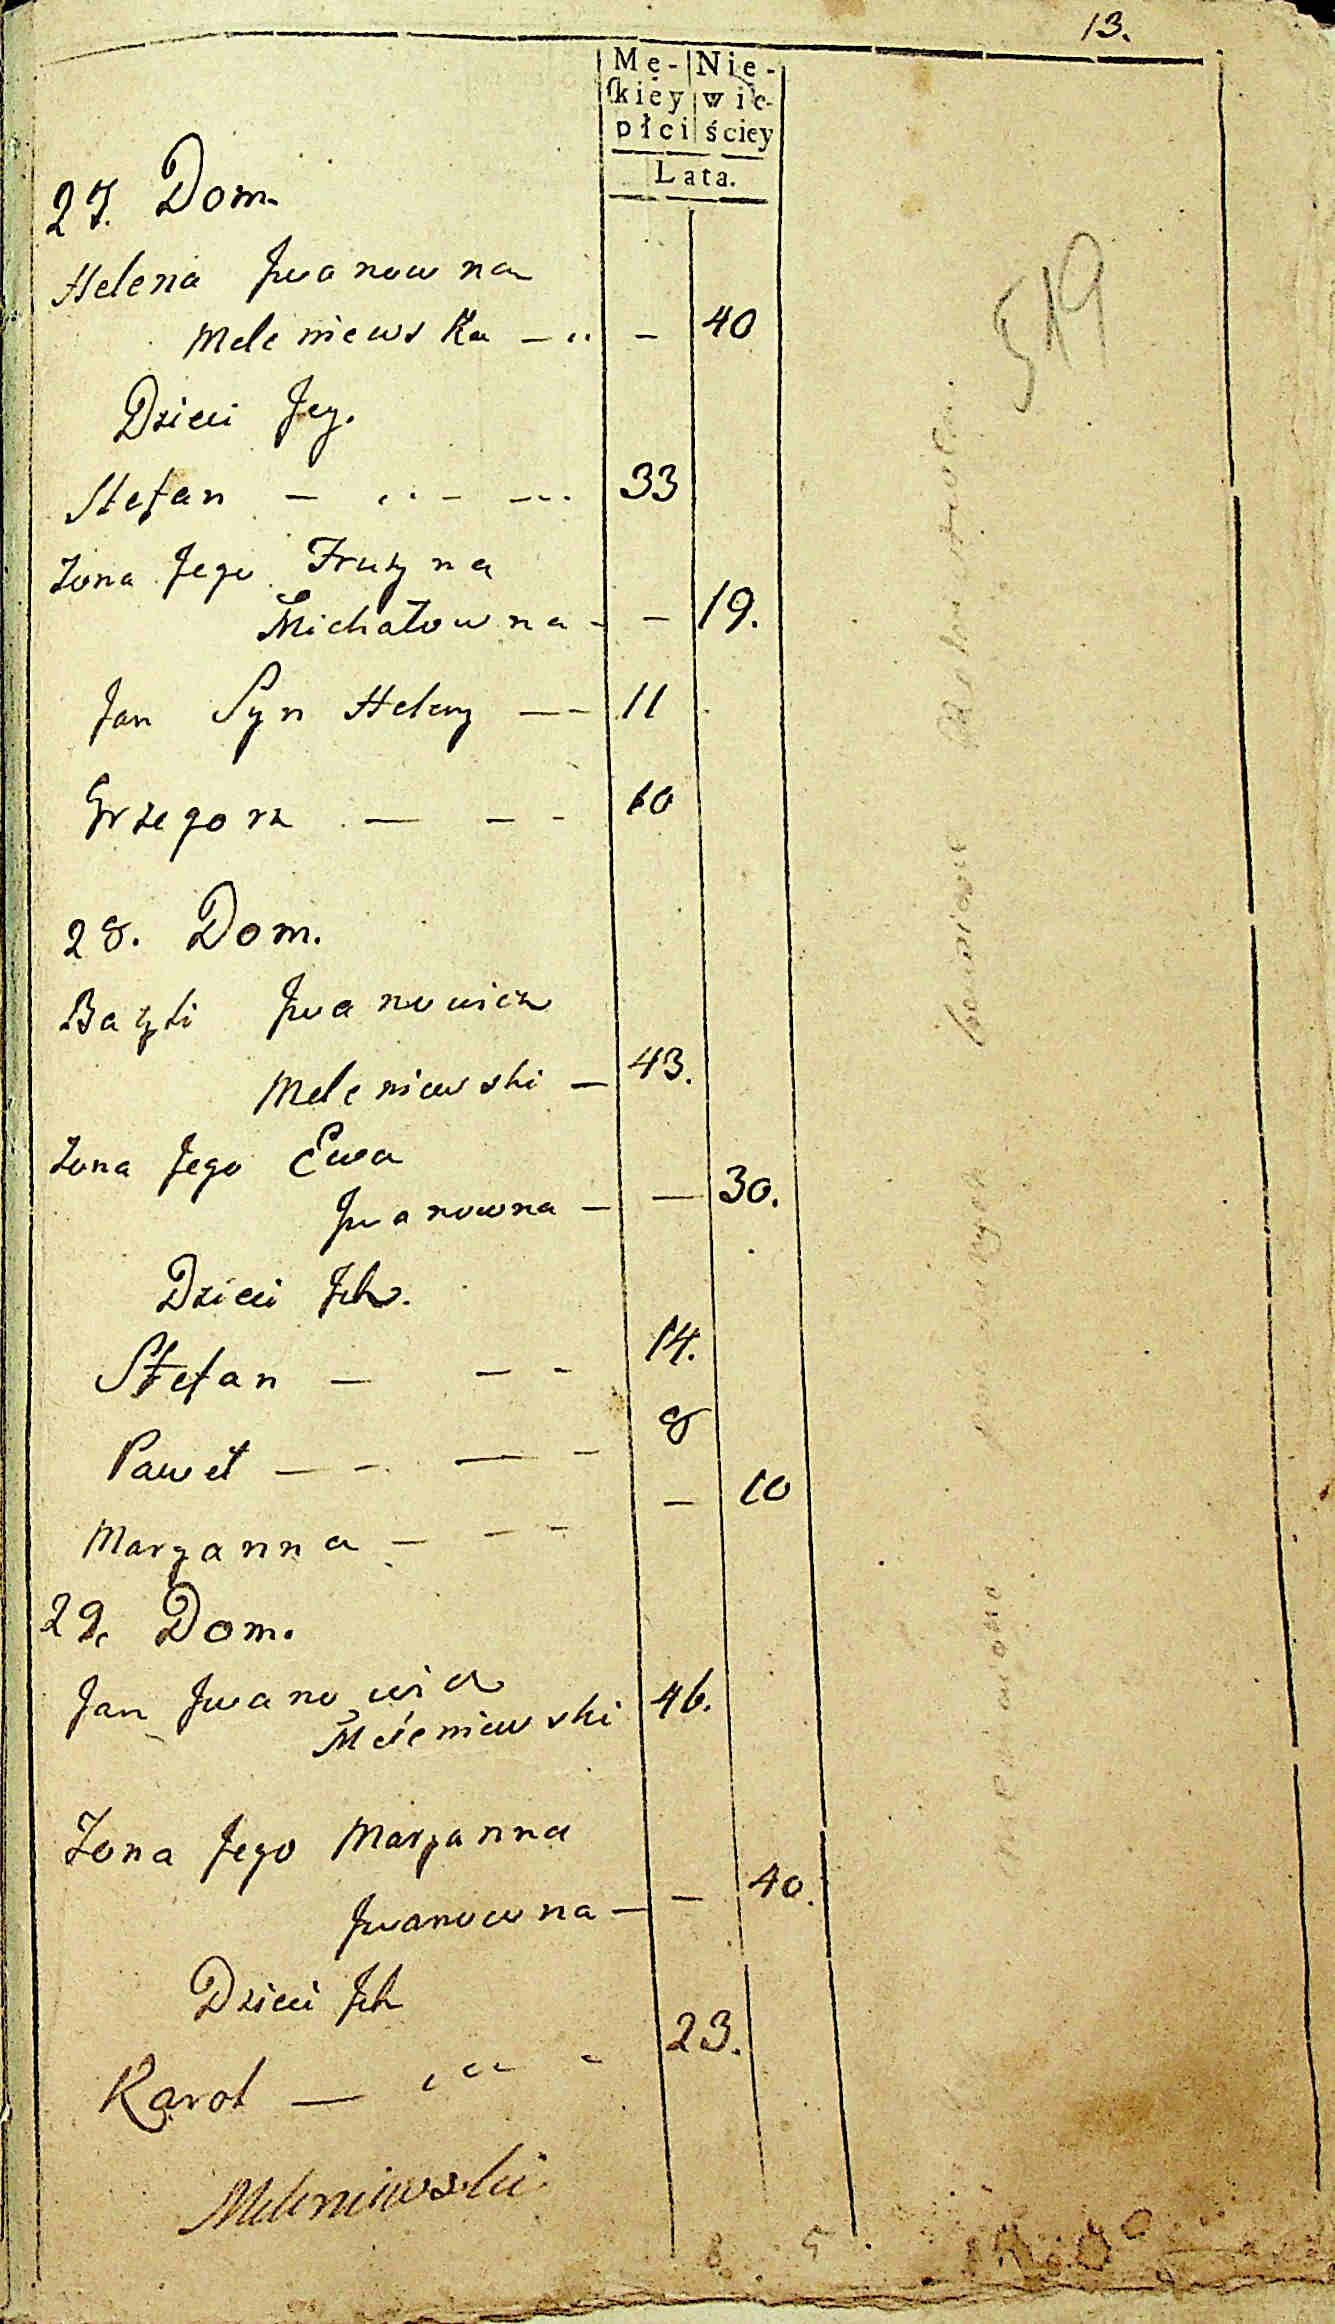 13.
Mę- Nie-
ſkiey wie-
płci ściey
Lata.
27. Dom.
Helena Jwanowna
Meleniewska - - 40
519
Dzieci Jey.
Stefan - - - 33
Żona Jego Fruzyna
Michałowna - - 19.
Jan Syn Heleny - - 11
Grzegorz - - - 10
28. Dom.
Bazyli Jwanowicz
Meleniewski - 43.
Żona Jego Ewa
Jwanowna - - 30.
Dzieci Jch.
Stefan - - - 14.
Paweł - - - - 8
Maryanna - - - - 10
29. Dom.
Jan Jwanowicz
Meleniewski 46.
Żona Jego Maryanna
Jwanowna - - 40.
Dzieci Jch
Karol - - - 23.
Meleniewski
8 5